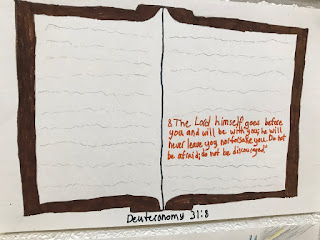 8 The Lord himself goes before
you and will be with you; he will
never leave you nor forsake you. Do not
be afraid; do not be discouraged."
Deuteronomy 31:8